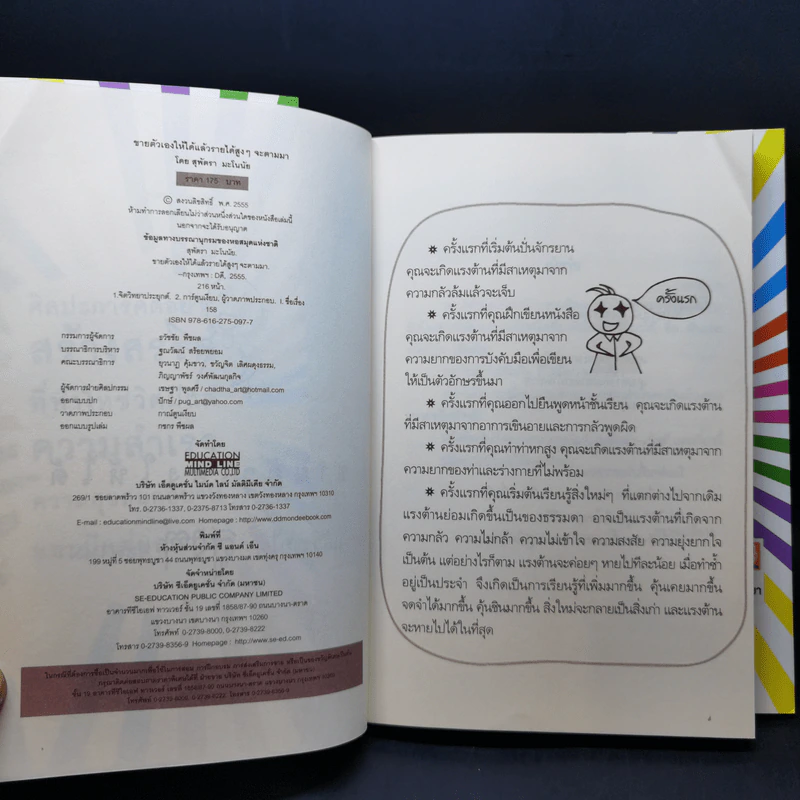 ขายตัวเองให้ได้แล้วรายได้สูงๆ จะตามมา
โดย สุพัตรา มะโนนัย
ราคา 175 บาท
© สงวนลิขสิทธิ์ พ.ศ. 2555
ห้ามทำการลอกเลียนไม่ว่าส่วนหนึ่งส่วนใดของหนังสือเล่มนี้
นอกจากจะได้รับอนุญาต
ข้อมูลทางบรรณานุกรมของหอสมุดแห่งชาติ
สุพัตรา มะโนนัย.
ขายตัวเองให้ได้แล้วรายได้สูงๆ จะตามมา.
--กรุงเทพฯ : ดีดี, 2555.
216 หน้า.
1.จิตวิทยาประยุกต์. 2. การ์ตูนเงียบ. ผู้วาดภาพประกอบ. I. ชื่อเรื่อง
158
ISBN 978-616-275-097-7
กรรมการผู้จัดการ ธวัชชัย พืชผล
บรรณาธิการบริหาร ฐณวัฒณ์ สร้อยพยอม
คณะบรรณาธิการ ยุวนาฏ คุ้มขาว, ขวัญจิต เลิศผดุงธรรม,
ภิญญาพัชร์ วงศ์พัฒนกุลกิจ
ผู้จัดการฝ่ายศิลปกรรม เชษฐา พูลศรี / chadtha_art@hotmail.com
ออกแบบปก ปักษ์ / pug_art@yahoo.com
วาดภาพประกอบ การ์ตูนเงียบ
ออกแบบรูปเล่ม กชกร พืชผล
จัดทำโดย
EDUCATION
MIND LINE
MULTIMEDIA CO.,LTD
บริษัท เอ็ดดูเคชั่น ไมนด์ ไลน์ มัลติมีเดีย จำกัด
269/1 ซอยลาดพร้าว 101 ถนนลาดพร้าว แขวงวังทองหลาง เขตวังทองหลาง กรุงเทพฯ 10310
โทร. 0-2736-1337, 0-2375-8713 โทรสาร 0-2736-1337
E-mail : educationmindline@live.com Homepage : http://www.ddmondeebook.com
พิมพ์ที่
ห้างหุ้นส่วนจำกัด ซี แอนด์ เอ็น
199 หมู่ที่ 5 ซอยพุทธบูชา 44 ถนนพุทธบูชา แขวงบางมด เขตทุ่งครุ กรุงเทพฯ 10140
จัดจำหน่ายโดย
บริษัท ซีเอ็ดยูเคชั่น จำกัด (มหาชน)
SE-EDUCATION PUBLIC COMPANY LIMITED
อาคารทีซีไอเอฟ ทาวเวอร์ ชั้น 19 เลขที่ 1858/87-90 ถนนบางนา-ตราด
แขวงบางนา เขตบางนา กรุงเทพฯ 10260
โทรศัพท์ 0-2739-8000, 0-2739-8222
โทรสาร 0-2739-8356-9 Homepage : http://www.se-ed.com
ครั้งแรกที่เริ่มต้นปั่นจักรยาน
คุณจะเกิดแรงต้านที่มีสาเหตุมาจาก
ความกลัวล้มแล้วจะเจ็บ
ครั้งแรก
ครั้งแรกที่คุณฝึกเขียนหนังสือ
คุณจะเกิดแรงต้านที่มีสาเหตุมาจาก
ความยากของการบังคับมือเพื่อเขียน
ให้เป็นตัวอักษรขึ้นมา
ครั้งแรกที่คุณออกไปยืนพูดหน้าชั้นเรียน คุณจะเกิดแรงต้าน
ที่มีสาเหตุมาจากอาการเขินอายและการกลัวพูดผิด
ครั้งแรกที่คุณทำท่าหกสูง คุณจะเกิดแรงต้านที่มีสาเหตุมาจาก
ความยากของท่าและร่างกายที่ไม่พร้อม
ครั้งแรกที่คุณเริ่มต้นเรียนรู้สิ่งใหม่ๆ ที่แตกต่างไปจากเดิม
แรงต้านย่อมเกิดขึ้นเป็นของธรรมดา อาจเป็นแรงต้านที่เกิดจาก
ความกลัว ความไม่กล้า ความไม่เข้าใจ ความสงสัย ความยุ่งยากใจ
เป็นต้น แต่อย่างไรก็ตาม แรงต้านจะค่อยๆ หายไปทีละน้อย เมื่อทำซ้ำ
อยู่เป็นประจำ จึงเกิดเป็นการเรียนรู้ที่เพิ่มมากขึ้น คุ้นเคยมากขึ้น
จดจำได้มากขึ้น คุ้นชินมากขึ้น สิ่งใหม่จะกลายเป็นสิ่งเก่า และแรงต้าน
จะหายไปได้ในที่สุด